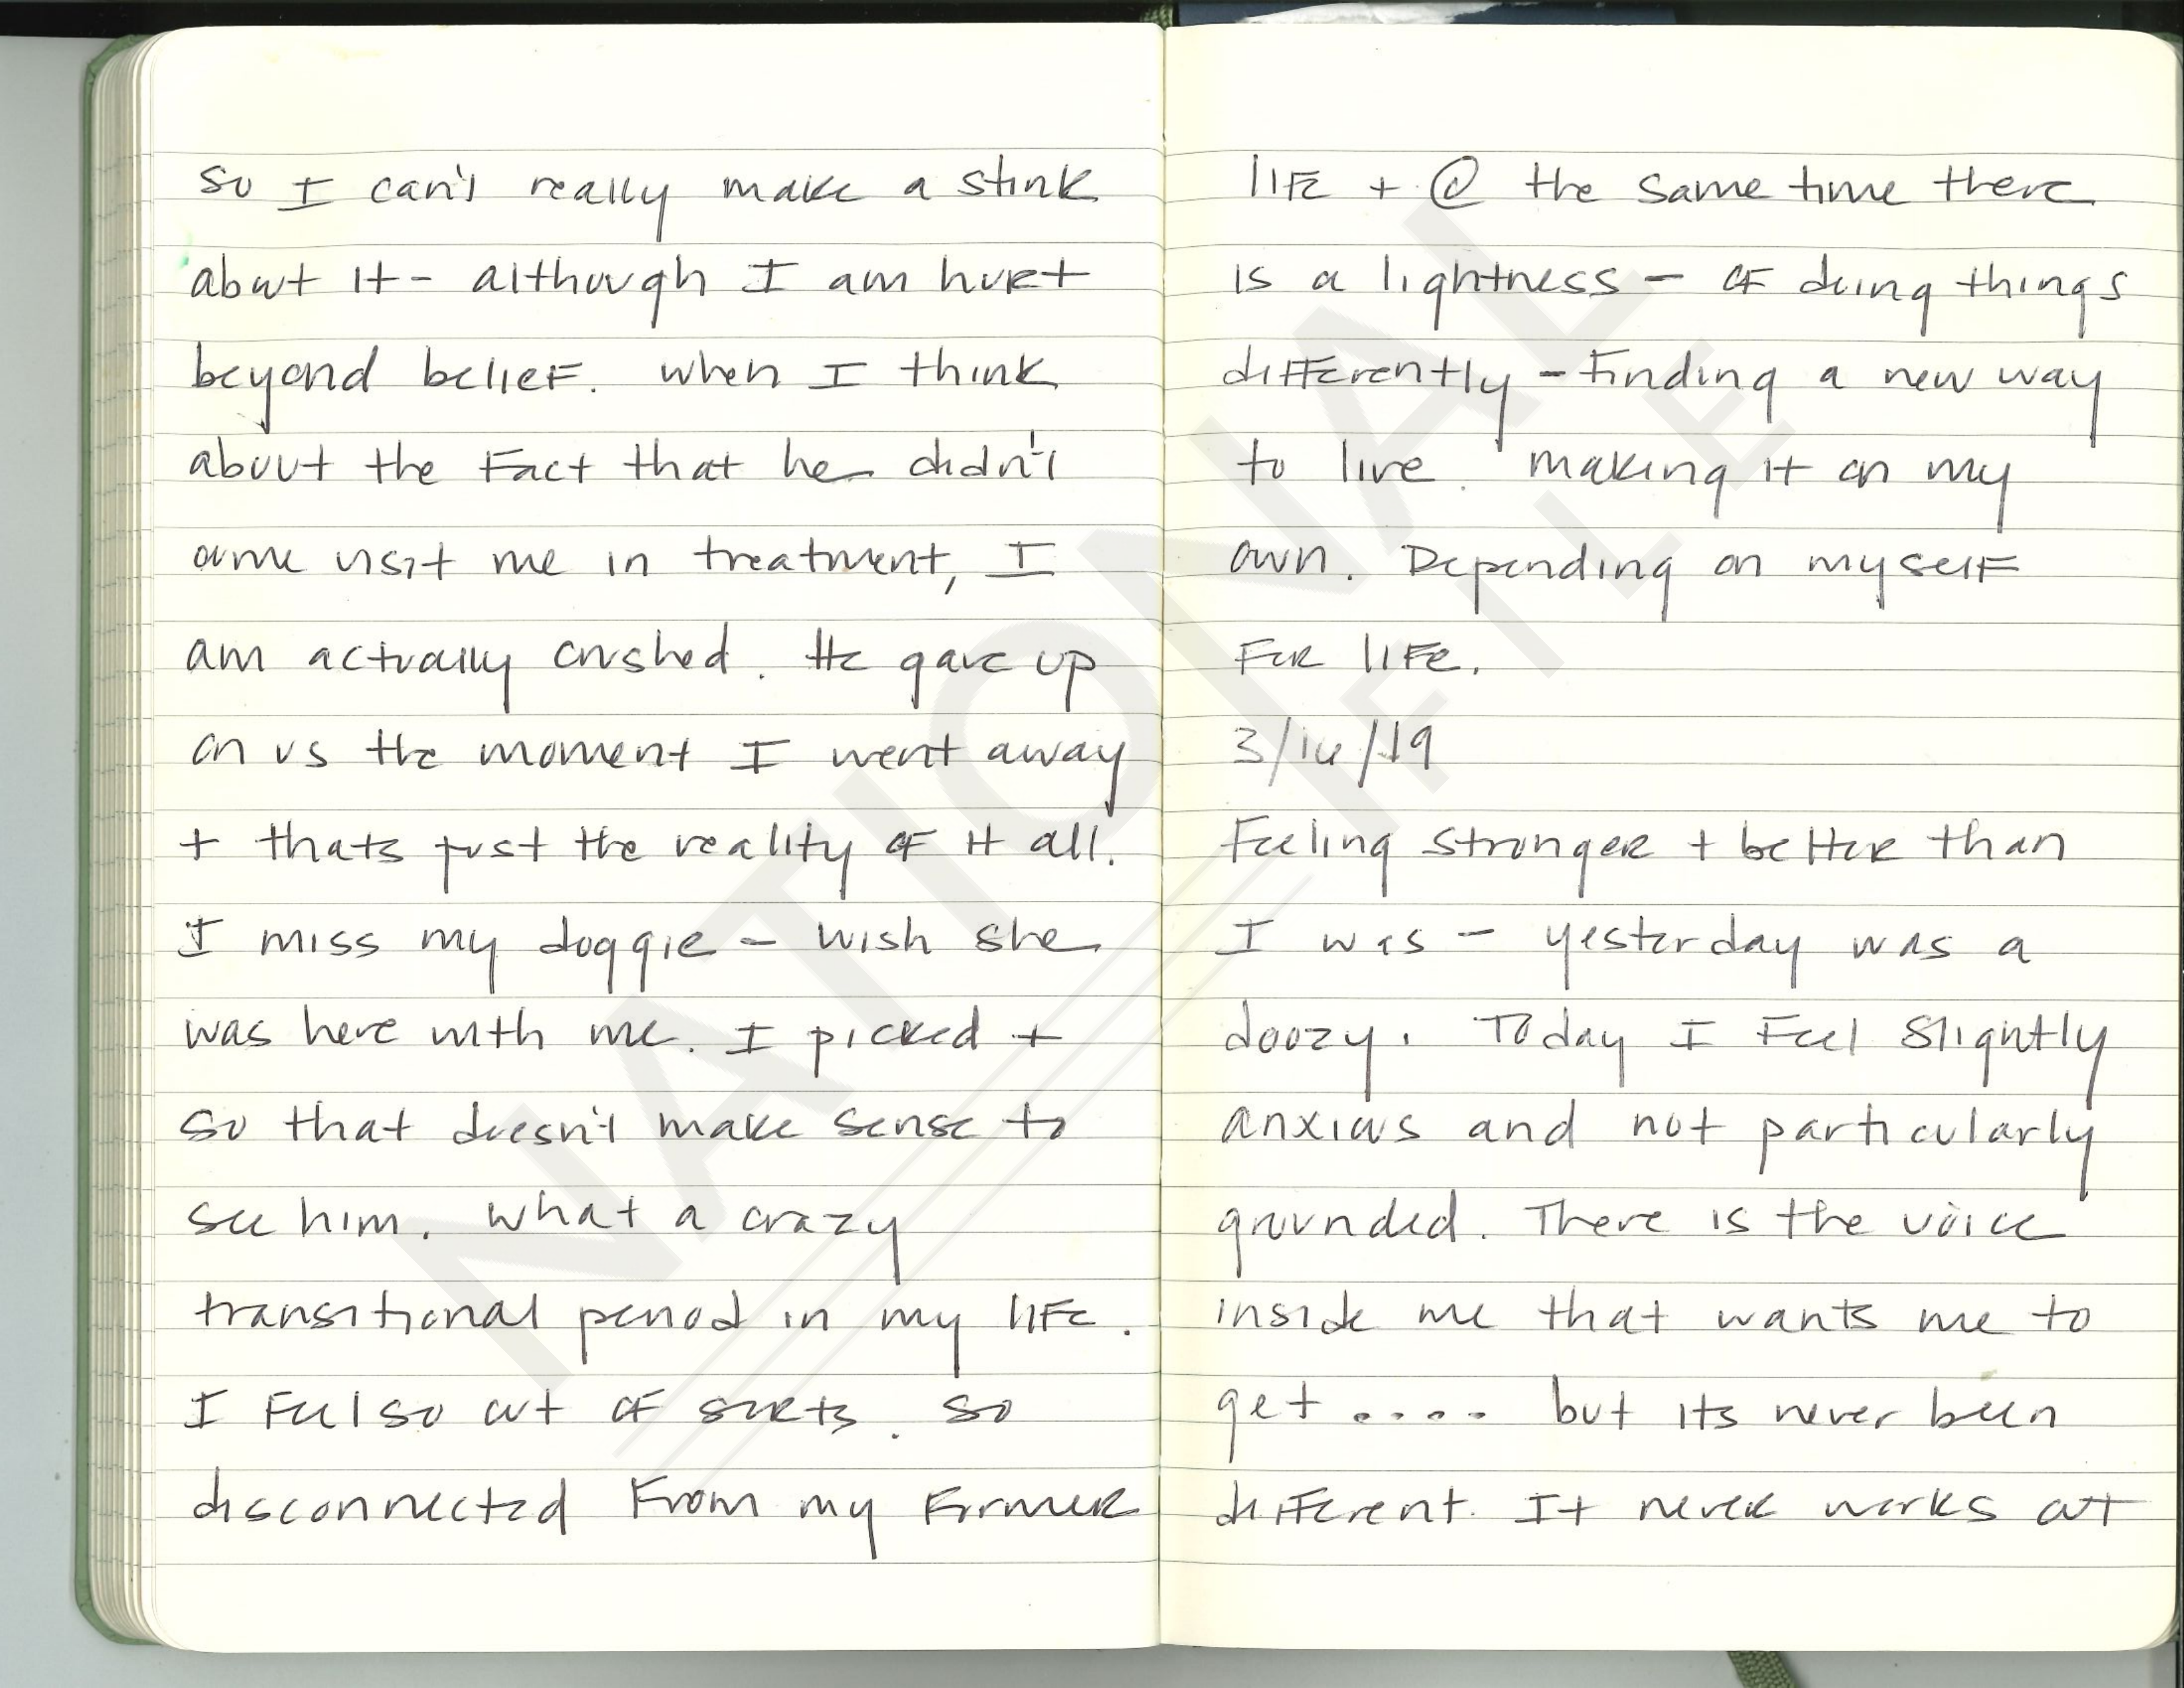 so I can't really make a stink
about it - although I am hurt
beyond belief. when I think
about the fact that he didn't
come visit me in treatment, I
am actually crushed. He gave up
on us the moment I went away
+ thats just the reality of it all.
I miss my doggie - wish she
was here with me. I picked +
so that doesn't make sense to
see him. what a crazy
transitional period in my life.
I feel so out of sorts. so
disconnected from my former
life + @ the same time there
is a lightness - of doing things
differently - finding a new way
to live. making it on my
own. Depending on myself
for life.
Feeling stronger + better than
I was - yesterday was a
doozy. Today I feel slightly
anxious and not particularly
grounded. There is the voice
inside me that wants me to
get .... but its never been
different. It never works out
NATIONAL
FILE